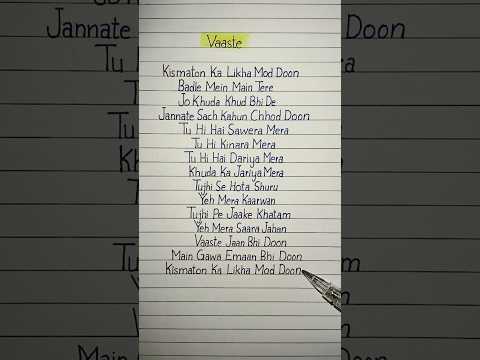 Vaaste
Kismaton Ka Likha Mod Doon
Badle Mein Main Tere
Jo Khuda Khud Bhi De
Jannate Sach Kahun Chhod Doon
Tu Hi Hai Sawera Mera
Tu Hi Kinara Mera
Tu Hi Hai Dariya Mera
Khuda Ka Jariya Mera
Tujhi Se Hota Shuru
Yeh Mera Kaarwan
Tujhi Pe Jaake Khatam
Yeh Mera Saara Jahan
Vaaste Jaan Bhi Doon
Main Gawa Emaan Bhi Doon
Kismaton Ka Likha Mod Doon